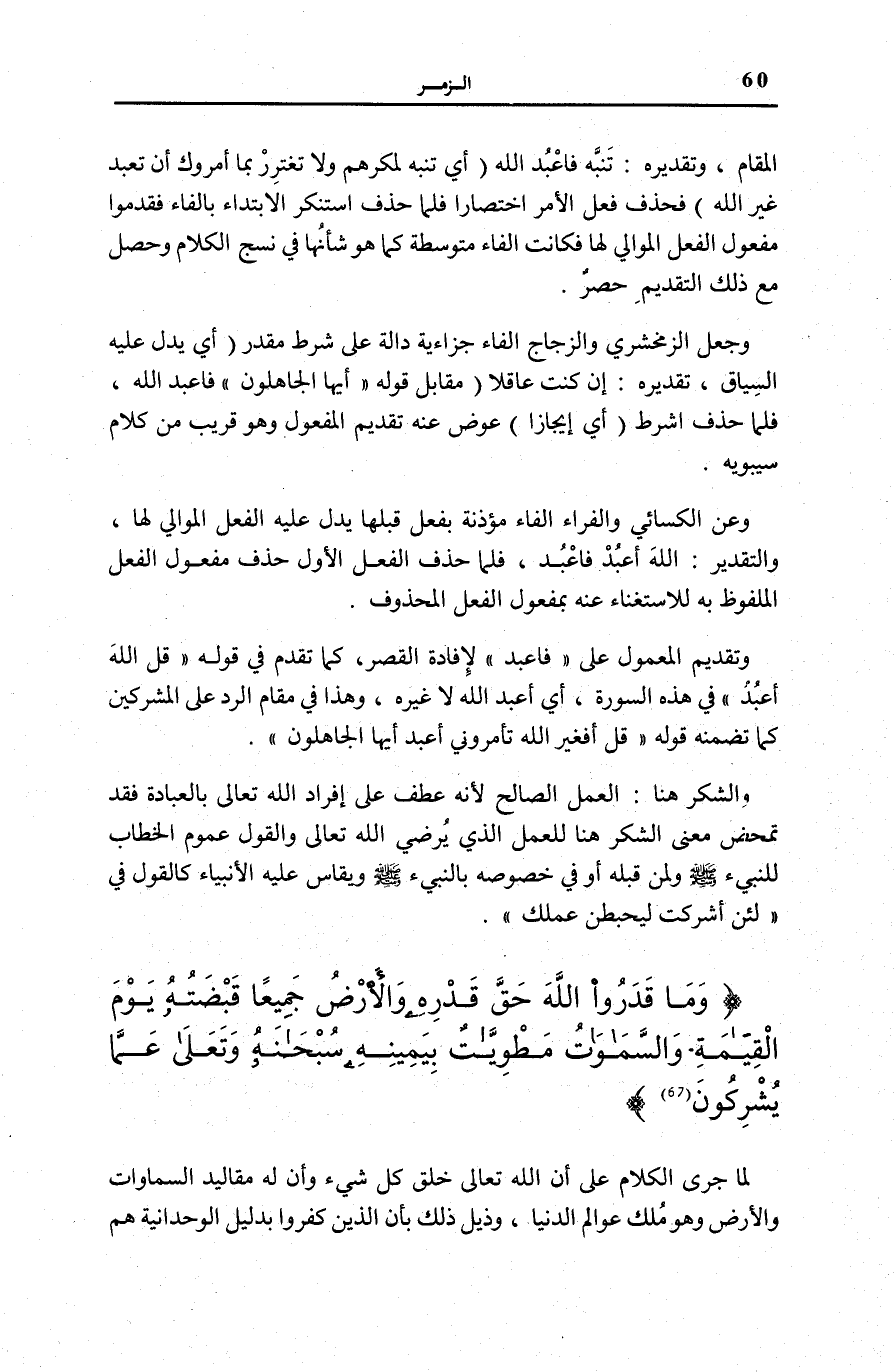 60
الـزمـــر
المقام ، وتقديره : تَنبَّه فاعْبُد الله ( أي تنبه لمكرهم ولا تغترِرْ بما أمروك أن تعبد
غير الله ) فحذف فعل الأمر اختصارا فلما حذف استنكر الابتداء بالفاء فقدموا
مفعول الفعل الموالي لها فكانت الفاء متوسطة كما هو شأنُها في نسج الكلام وحصل
مع ذلك التقديمِ حصرٌ .
وجعل الزمخشري والزجاج الفاء جزاءية دالة على شرط مقدر ( أي يدل عليه
السِياق ، تقديره : إن كنت عاقلا ( مقابل قوله « أيها الجاهلون » فاعبد الله ،
فلما حذف اشرط ( أي إيجازا ) عوض عنه تقديم المفعول وهو قريب من كلام
سيبويه .
وعن الكسائي والفراء الفاء مؤذنة بفعل قبلها يدل عليه الفعل الموالي لها ،
والتقدير : اللهَ أعبُدْ فاعْبُـد ، فلما حذف الفعـل الأول حذف مفعـول الفعل
الملفوظ به للاستغناء عنه بمفعول الفعل المحذوف .
وتقديم المعمول على « فاعبد » لإِفادة القصر، كما تقدم في قولـه « قل اللهَ
أعبُدُ » في هذه السورة ، أي أعبد الله لا غيره ، وهذا في مقام الرد على المشركين
كما تضمنه قوله « قل أفغير الله تأمروني أعبد أيها الجاهلون » .
والشكر هنا : العمل الصالح لأنه عطف على إفراد الله تعالى بالعبادة فقد
تمحض معنى الشكر هنا للعمل الذي يُرضي الله تعالى والقول عموم الخطاب
للنبيء ﷺ ولمن قبله أو في خصوصه بالنبيء ﷺ ويقاس عليه الأنبياء كالقول في
« لئن أشركت ليحبطن عملك » .
﴿ وَمَـا قَدَرُواْ اللَّهَ حَقَّ قَـدْرِهِۦ وَالْأَرْضُ جَمِيعًا قَبْضَتُـهُۥ يَـوْمَ
الْقِيَـٰمَـةِ وَالسَّمَـٰوَٰتُ مَـطْوِيَّـٰتٌ بِيَمِينِـــهِۦ سُبْحَـٰنَـهُۥ وَتَعَـلَىٰ عَـــمَّا
يُشْرِكُونَ(67) ﴾
لما جرى الكلام على أن الله تعالى خلق كل شيء وأن له مقاليد السماوات
والأرض وهو مُلك عوالم الدنيا ، وذيل ذلك بأن الذين كفروا بدليل الوحدانية هم